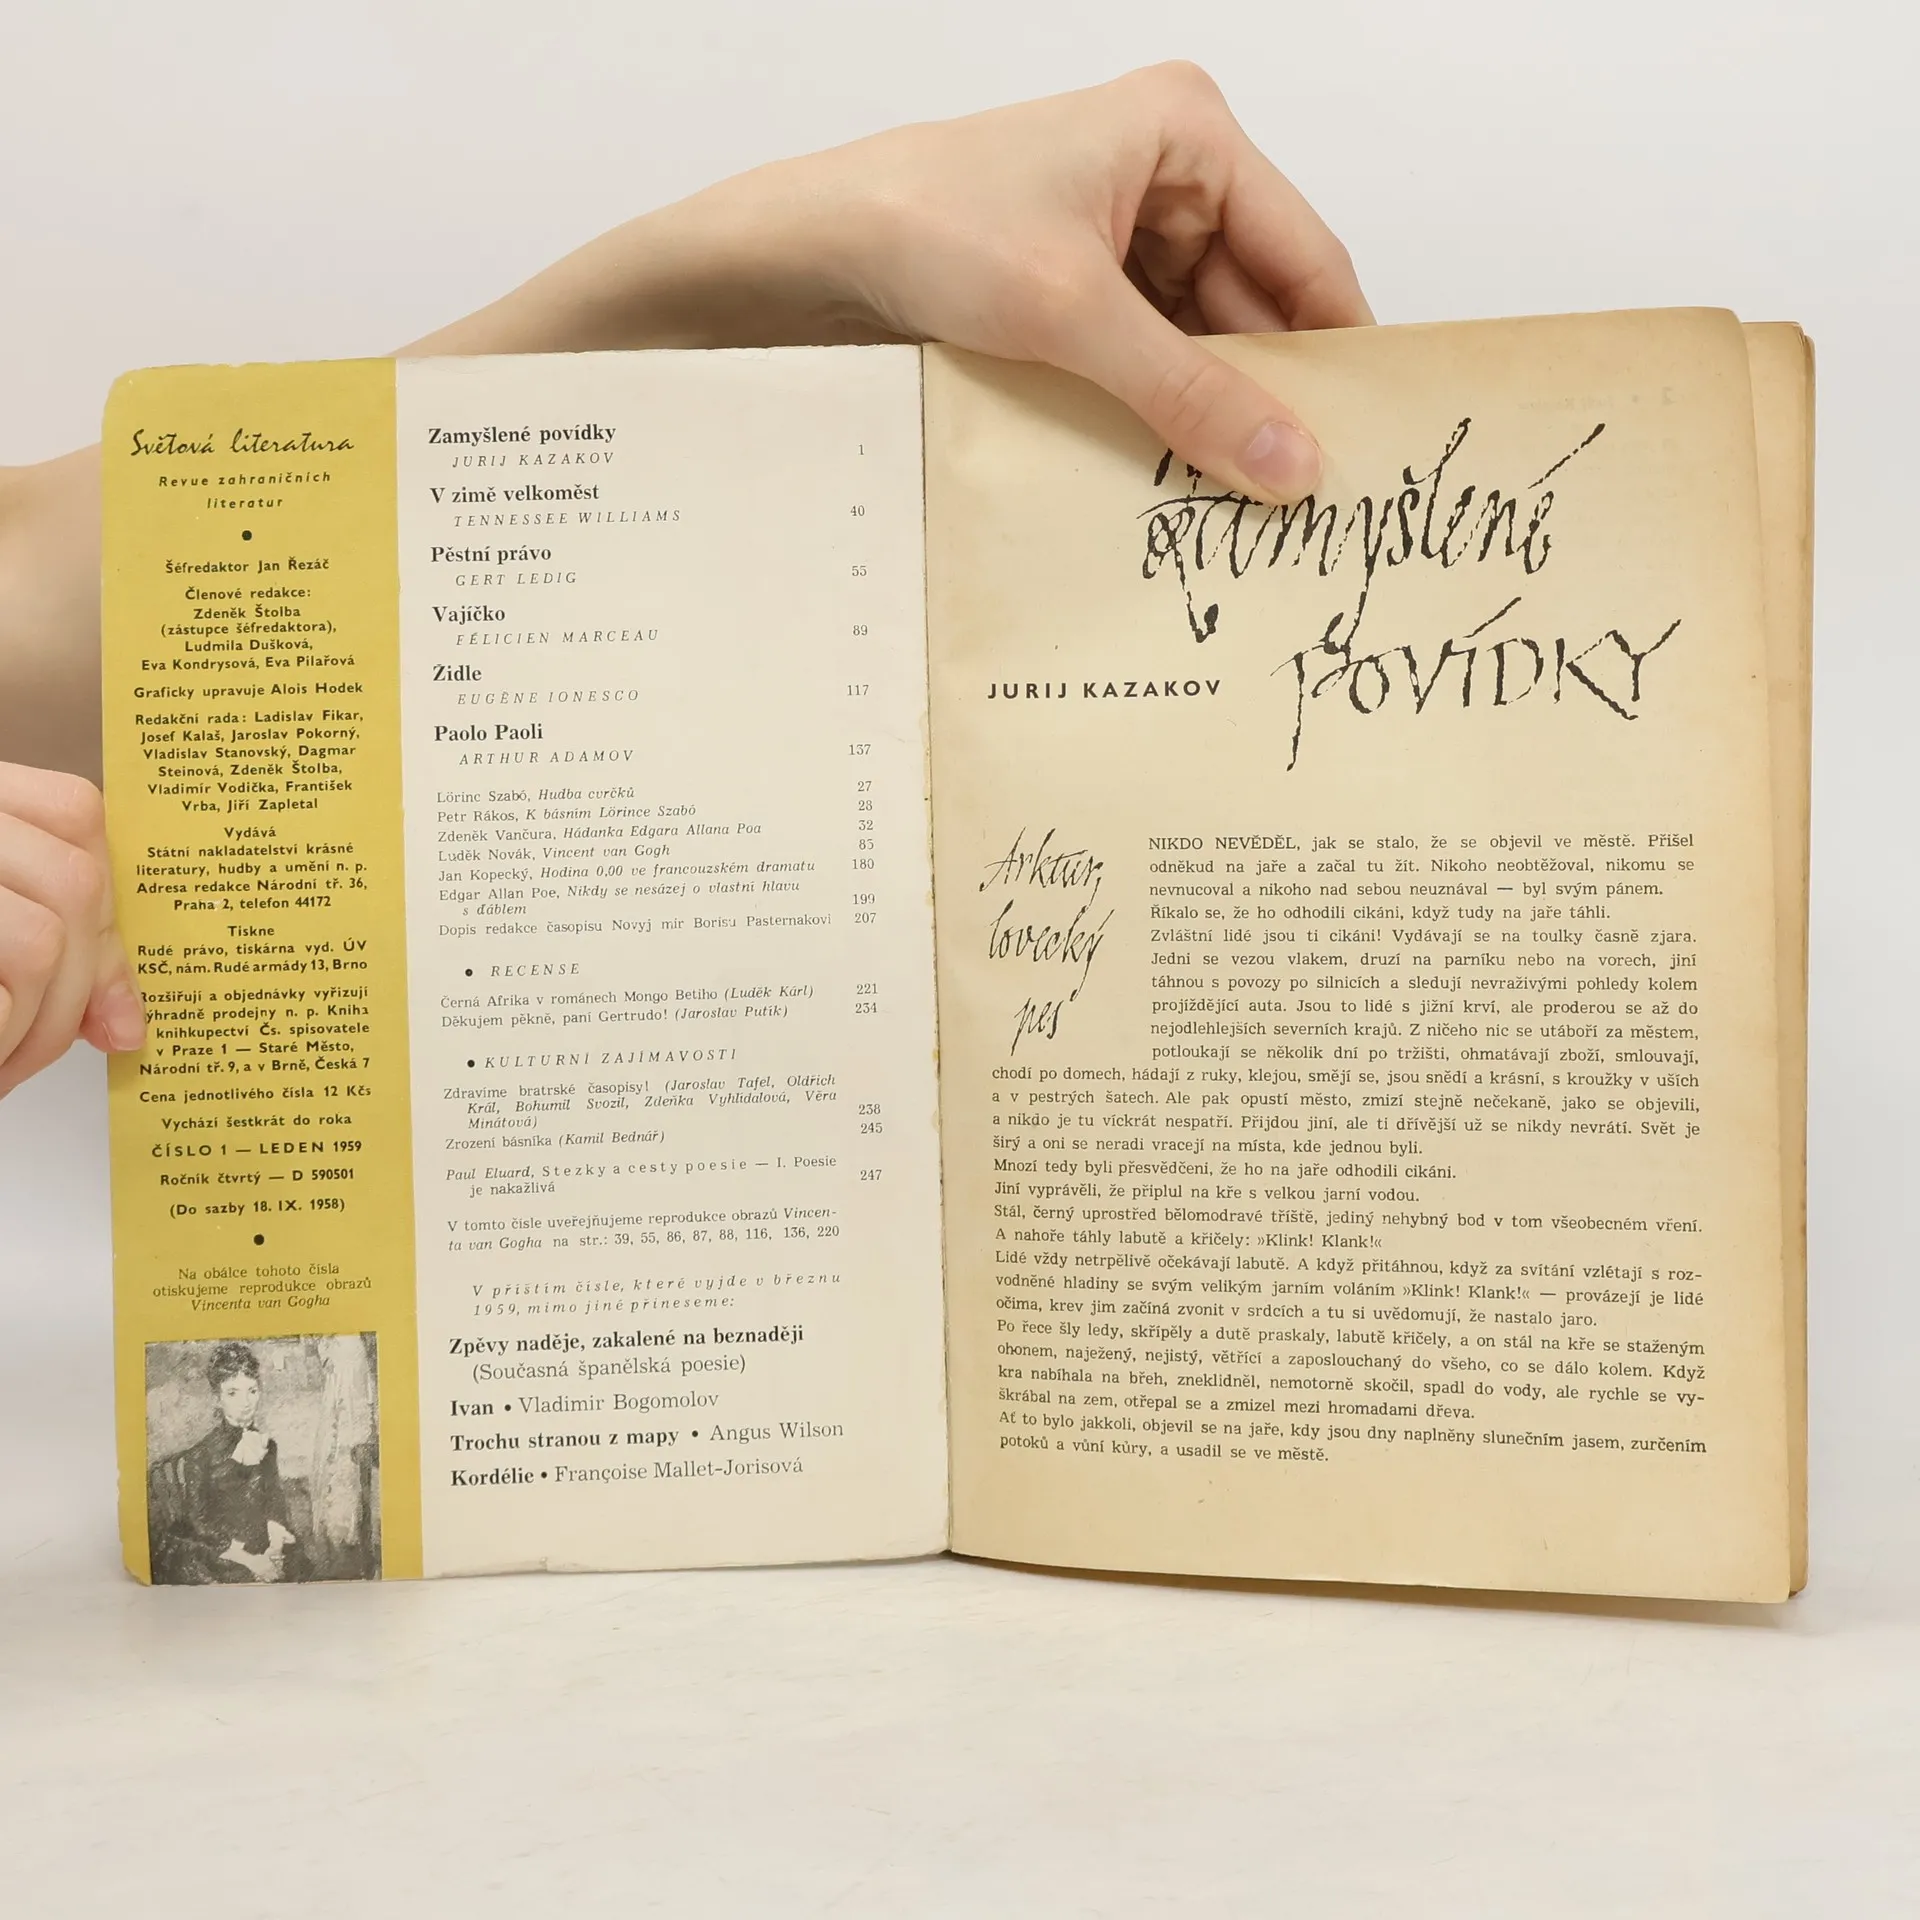 Světová literatura
Revue zahraničních
literatur
•
Šéfredaktor Jan Řezáč
Členové redakce:
Zdeněk Štolba
(zástupce šéfredaktora),
Ludmila Dušková,
Eva Kondrysová, Eva Pilařová
Graficky upravuje Alois Hodek
Redakční rada: Ladislav Fikar,
Josef Kalaš, Jaroslav Pokorný,
Vladislav Stanovský, Dagmar
Steinová, Zdeněk Štolba,
Vladimír Vodička, František
Vrba, Jiří Zapletal
Vydává
Státní nakladatelství krásné
literatury, hudby a umění n. p.
Adresa redakce Národní tř. 36,
Praha 2, telefon 44172
Tiskne
Rudé právo, tiskárna vyd. ÚV
KSČ, nám. Rudé armády 13, Brno
Rozšiřují a objednávky vyřizují
ýhradně prodejny n. p. Kniha
knihkupectví Čs. spisovatele
v Praze 1 — Staré Město,
Národní tř. 9, a v Brně, Česká 7
Cena jednotlivého čísla 12 Kčs
Vychází šestkrát do roka
ČÍSLO 1 — LEDEN 1959
Ročník čtvrtý — D 590501
(Do sazby 18. IX. 1958)
•
Na obálce tohoto čísla
otiskujeme reprodukce obrazů
Vincenta van Gogha
Zamyšlené povídky
JURIJ KAZAKOV 1
V zimě velkoměst
TENNESSEE WILLIAMS 40
Pěstní právo
GERT LEDIG 55
Vajíčko
FÉLICIEN MARCEAU 89
Židle
EUGÈNE IONESCO 117
Paolo Paoli
ARTHUR ADAMOV 137
Lörinc Szabó, Hudba cvrčků 27
Petr Rákos, K básním Lörince Szabó 28
Zdeněk Vančura, Hádanka Edgara Allana Poa 32
Luděk Novák, Vincent van Gogh 83
Jan Kopecký, Hodina 0,00 ve francouzském dramatu 180
Edgar Allan Poe, Nikdy se nesázej o vlastní hlavu
s ďáblem 199
Dopis redakce časopisu Novyj mir Borisu Pasternakovi 207
• RECENSE
Černá Afrika v románech Mongo Betiho (Luděk Kárl) 221
Děkujem pěkně, paní Gertrudo! (Jaroslav Putík) 234
• KULTURNÍ ZAJÍMAVOSTI
Zdravíme bratrské časopisy! (Jaroslav Tafel, Oldřich
Král, Bohumil Svozil, Zdeňka Vyhlídalová, Věra
Minátová) 238
Zrození básníka (Kamil Bednář) 245
Paul Eluard, Stezky a cesty poesie — I. Poesie
je nakažlivá 247
V tomto čísle uveřejňujeme reprodukce obrazů Vincen-
ta van Gogha na str.: 39, 55, 86, 87, 88, 116, 136, 220
V příštím čísle, které vyjde v březnu
1959, mimo jiné přineseme:
Zpěvy naděje, zakalené na beznaději
(Současná španělská poesie)
Ivan • Vladimir Bogomolov
Trochu stranou z mapy • Angus Wilson
Kordélie • Françoise Mallet-Jorisová
Zamyšlené
POVÍDKY
JURIJ KAZAKOV
Arktur,
lovecký
pes
NIKDO NEVĚDĚL, jak se stalo, že se objevil ve městě. Přišel
odněkud na jaře a začal tu žít. Nikoho neobtěžoval, nikomu se
nevnucoval a nikoho nad sebou neuznával — byl svým pánem.
Říkalo se, že ho odhodili cikáni, když tudy na jaře táhli.
Zvláštní lidé jsou ti cikáni! Vydávají se na toulky časně zjara.
Jedni se vezou vlakem, druzí na parníku nebo na vorech, jiní
táhnou s povozy po silnicích a sledují nevraživými pohledy kolem
projíždějící auta. Jsou to lidé s jižní krví, ale proderou se až do
nejodlehlejších severních krajů. Z ničeho nic se utáboří za městem,
potloukají se několik dní po tržišti, ohmatávají zboží, smlouvají,
chodí po domech, hádají z ruky, klejou, smějí se, jsou snědí a krásní, s kroužky v uších
a v pestrých šatech. Ale pak opustí město, zmizí stejně nečekaně, jako se objevili,
a nikdo je tu víckrát nespatří. Přijdou jiní, ale ti dřívější už se nikdy nevrátí. Svět je
širý a oni se neradi vracejí na místa, kde jednou byli.
Mnozí tedy byli přesvědčeni, že ho na jaře odhodili cikáni.
Jiní vyprávěli, že připlul na kře s velkou jarní vodou.
Stál, černý uprostřed bělomodravé tříště, jediný nehybný bod v tom všeobecném vření.
A nahoře táhly labutě a křičely: »Klink! Klank!«
Lidé vždy netrpělivě očekávají labutě. A když přitáhnou, když za svítání vzlétají s roz-
vodněné hladiny se svým velikým jarním voláním »Klink! Klank!« — provázejí je lidé
očima, krev jim začíná zvonit v srdcích a tu si uvědomují, že nastalo jaro.
Po řece šly ledy, skřípěly a dutě praskaly, labutě křičely, a on stál na kře se staženým
ohonem, naježený, nejistý, větřící a zaposlouchaný do všeho, co se dálo kolem. Když
kra nabíhala na břeh, zneklidněl, nemotorně skočil, spadl do vody, ale rychle se vy-
škrábal na zem, otřepal se a zmizel mezi hromadami dřeva.
Ať to bylo jakkoli, objevil se na jaře, kdy jsou dny naplněny slunečním jasem, zurčením
potoků a vůní kůry, a usadil se ve městě.